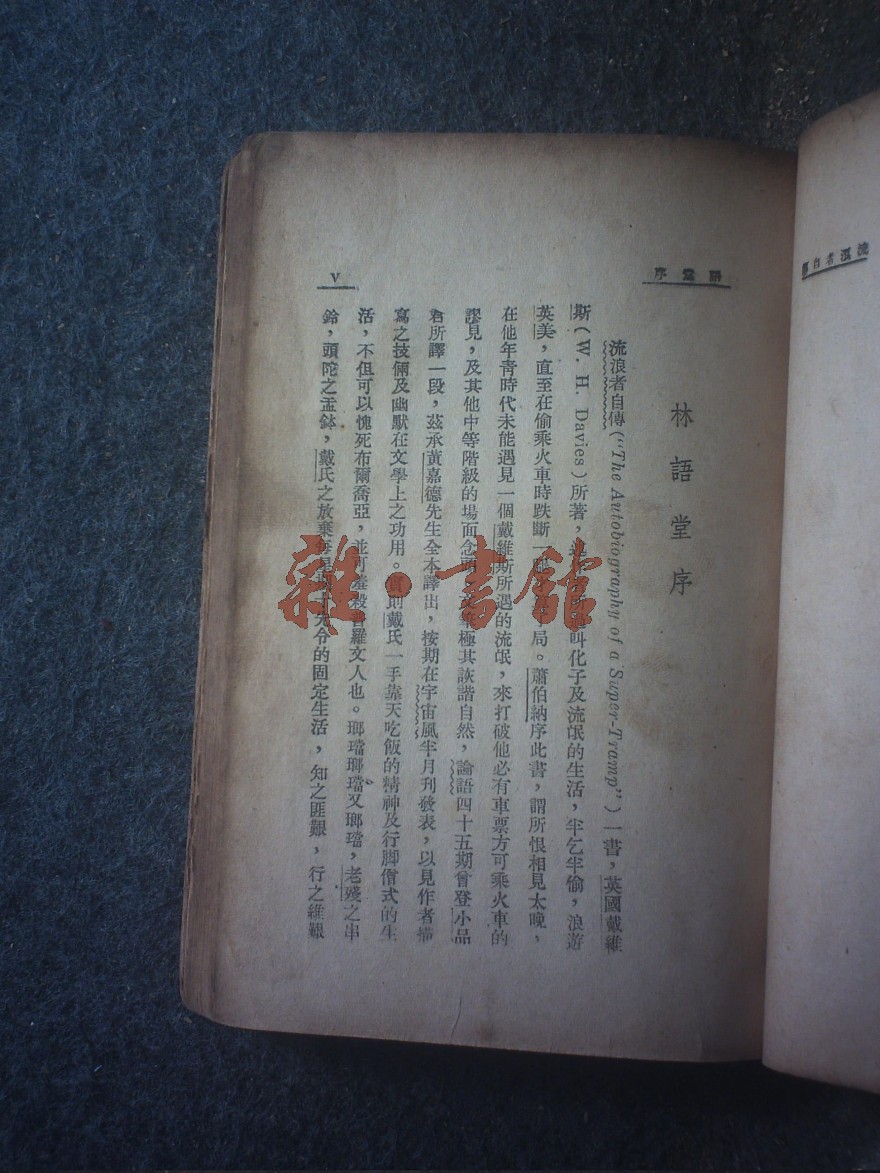 語堂序
V
林語堂序
流浪者自傳(“The Autobiography of a Super-Tramp”)一書，英國戴維
斯(W. H. Davies)所著，叫化子及流氓的生活，半乞半偷，浪遊
英美，直至在偷乘火車時跌斷一局。蕭伯納序此書，謂所恨相見太晚，
在他年青時代未能遇見一個戴維斯所遇的流氓，來打破他必有車票方可乘火車的
謬見，及其他中等階級的場面念極其詼諧自然，論語四十五期曾登小品
君所譯一段，茲承黃嘉德先生全本譯出，按期在宇宙風半月刊發表，以見作者描
寫之技倆及幽默在文學上之功用。實則戴氏一手靠天吃飯的精神及行脚僧式的生
活，不但可以愧死布爾喬亞，並可羞殺普羅文人也。瑯璫瑯璫又瑯璫，老殘之串
鈴，頭陀之盂鉢，戴氏之放棄每星期先令的固定生活，知之匪艱，行之維艱
雜·書館